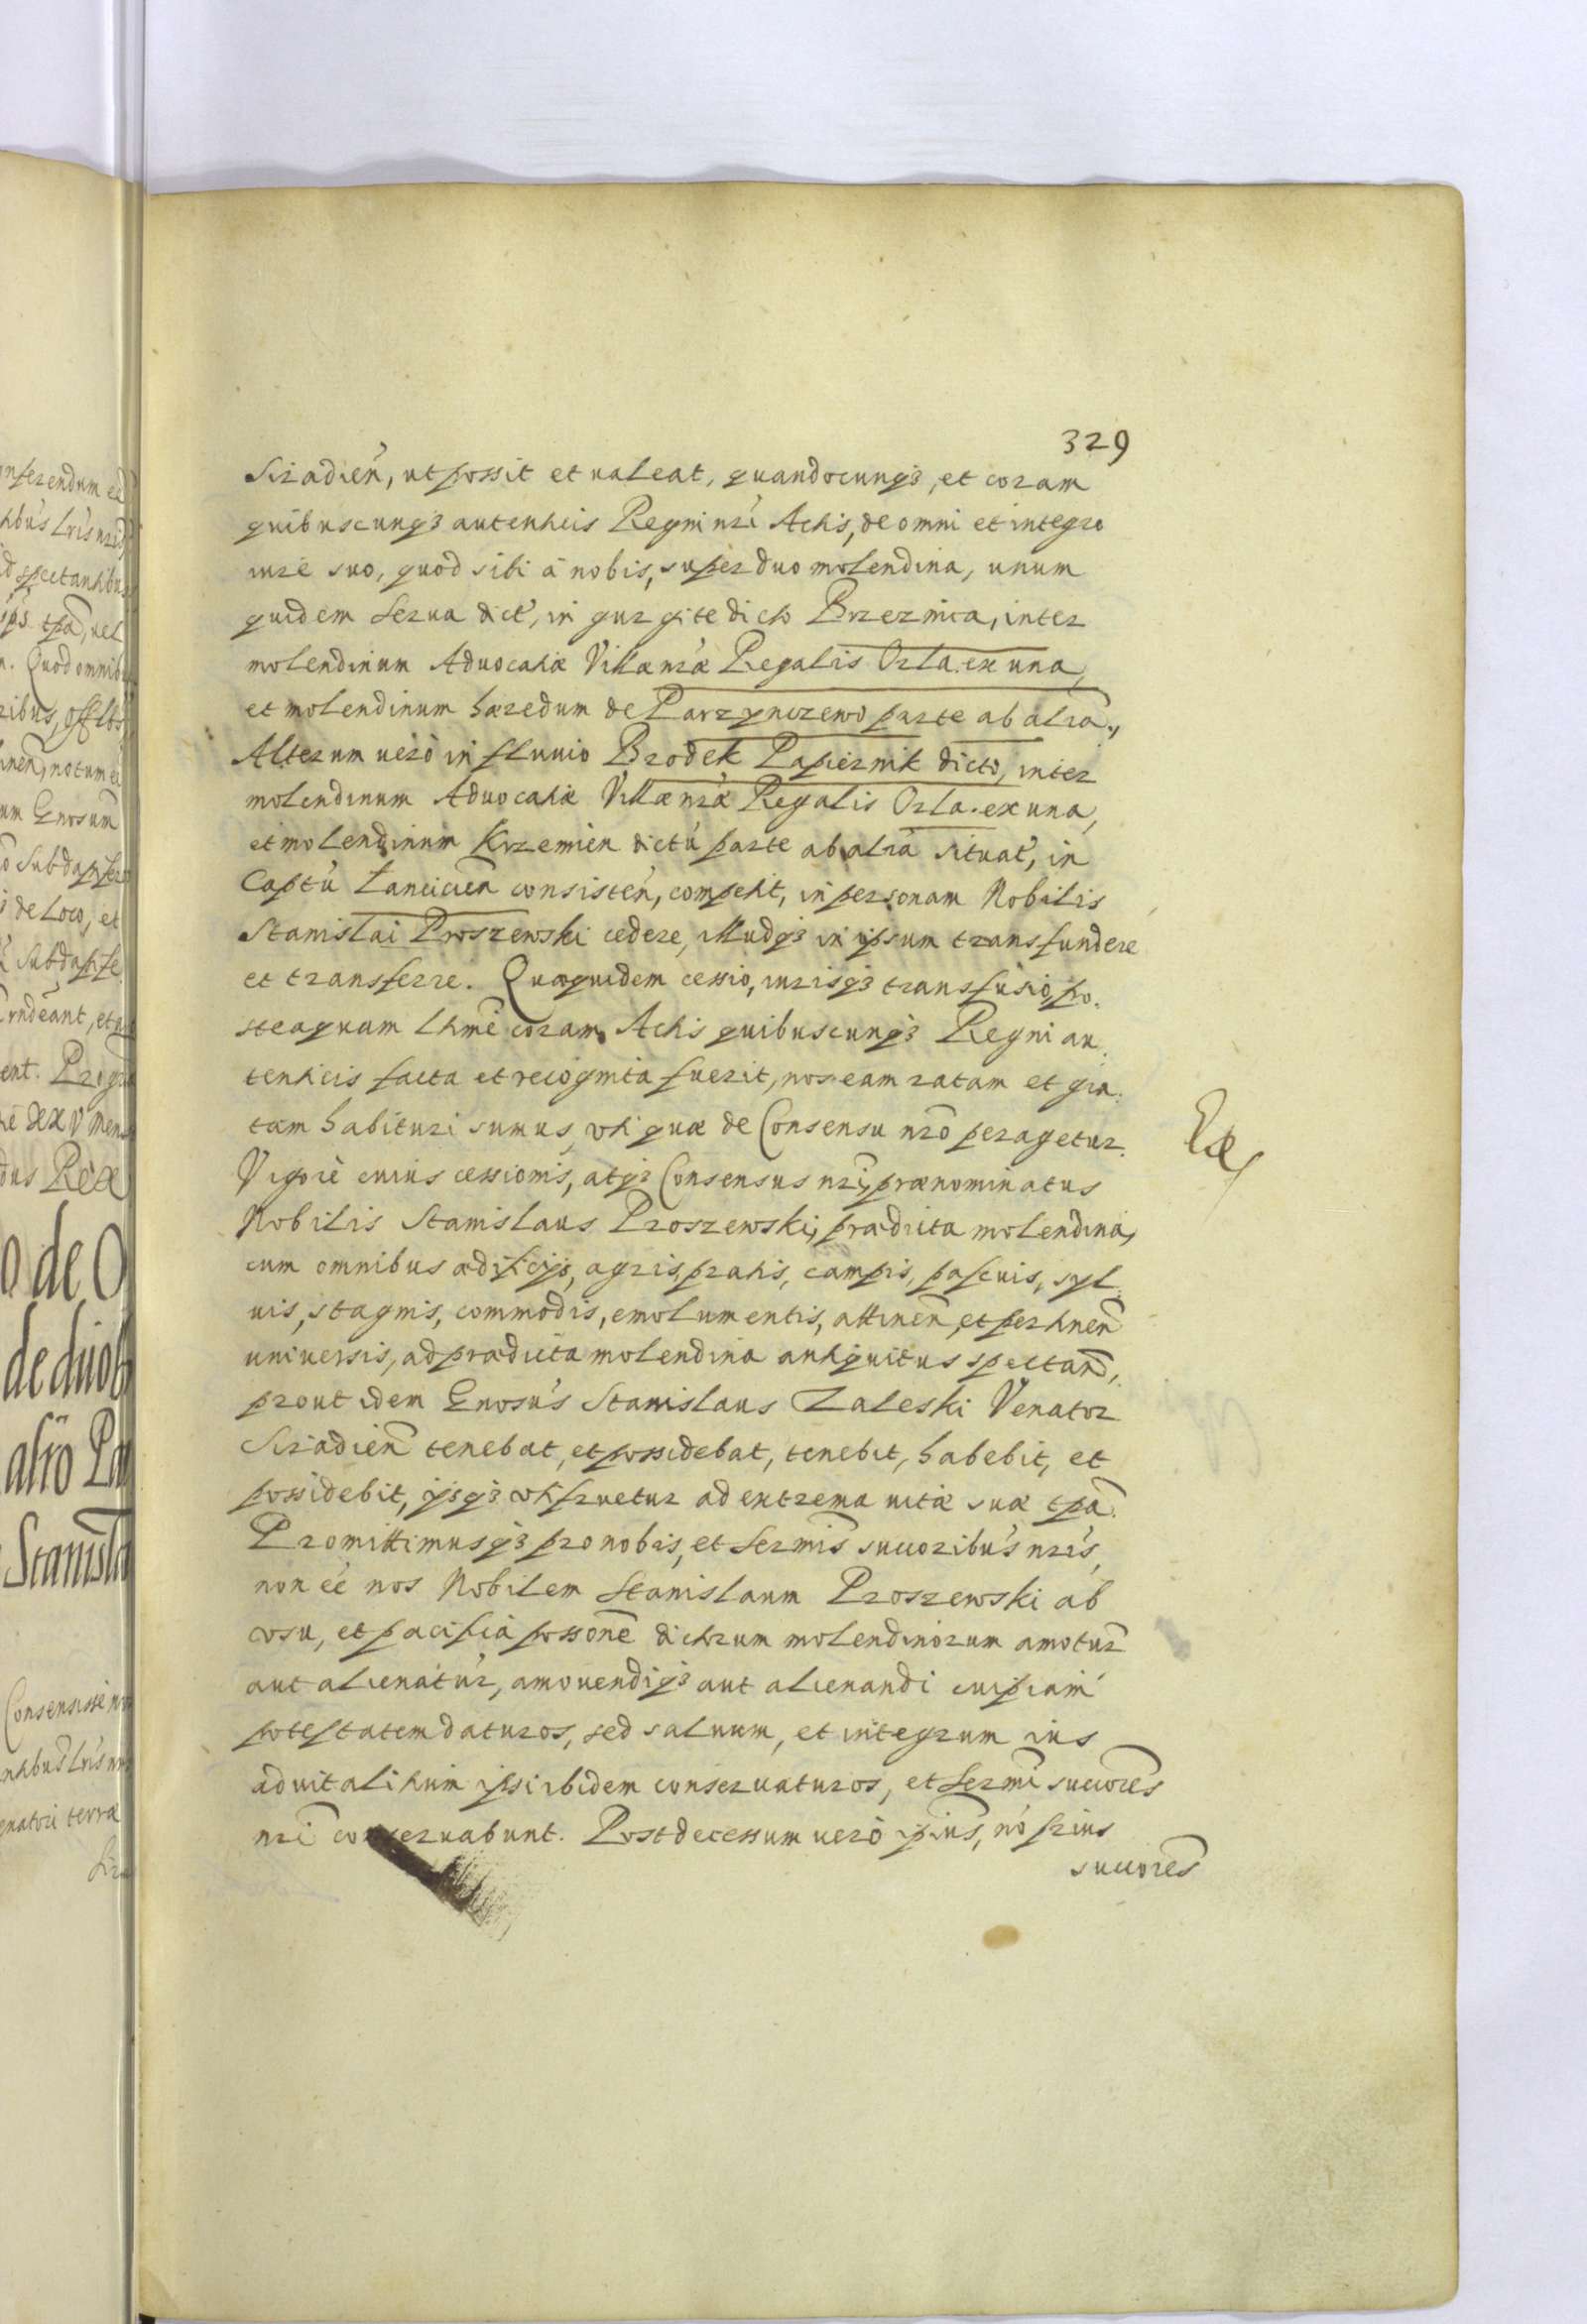 329
Siradień, ut possit et ualeat, quandocunq3, et coram
quibuscunq3 autenticis Regni nrí Actis, de omni et integro
iure suo, quod sibi á nobis, super duo molendina, unum
quidem Serua dict', in gurgite dicto Brzeznica, inter
molendinum Aduocatiæ Villæ nræ Regalis Orla. ex una,
et molendinum hæredum de Parzynczewo parte ab altrã,
Alterum uerò in fluuio Brodek Papiernik dicto, inter
molendinum Aduocatiæ Villæ nræ Regalis Orla. ex una,
et molendinum Krzemien dictú parte ab altrá situat', in
Captú Łancicień consisteń, competit, in personam Nobilis
Stanislai Proszewski cedere, illudq3 in ipsum transfundere
et transferre. Quæquidem cessio, iurisq3 transfusio, po.
steaquam ltimé coram Actis quibuscunq3 Regni au.
tenticis facta et recognita fuerit, nos eam ratam et gra.
tam habituri sumus, uti quæ de Consensu nrõ peragetur.
Vigore cuius cessionis, atq3 Consensus nri, prænominatus
Nobilis Stanislaus Proszewski, prædicta molendina,
cum omnibus ædificijs, agris, pratis, campis, pascuis, syl.
uis, stagnis, commodis, emolumentis, attineñ, et pertineñ
uniuersis, ad prædicta molendina antiquitus spectañ,
prout idem Gnosús Stanislaus Zaleski Venator
Siradień tenebat, et possidebat, tenebit, habebit, et
possidebit, ijsq3 utifruetur ad extrema uitæ suæ tpã.
Promittimusq3 pro nobis, et Sermis succoribús nrís,
non eé nos Nobilem Stanislaum Proszewski ab
usu, et pacifica possone dictorum molendinorum amotur
aut alienatúr, amouendiq3 aut alienandi cuipiam
potestatem daturos, sed saluum, et integrum ius
aduitalitium ipsi ibidem conseruaturos, et Sermi succores
nri conseruabunt. Post decessum uerò ipius, nó prius
succores